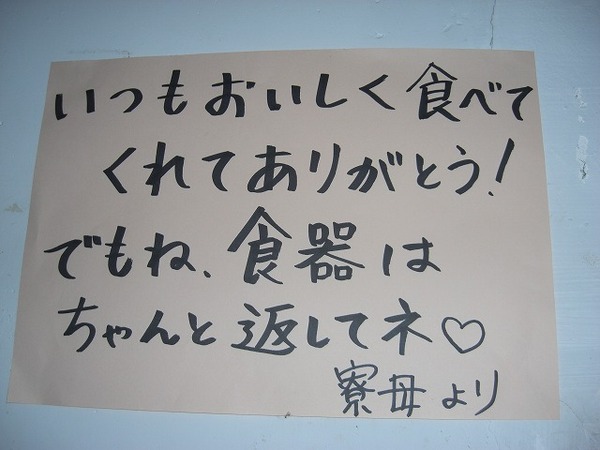 いつもおいしく食べて
くれてありがとう!
でもね、食器は
ちゃんと返してネ♡
寮母より